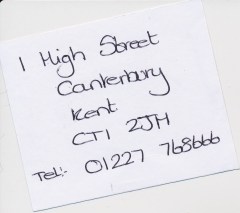 1 High Street
Canterbury
Kent
CT1 2JH
Tel:- 01227 768666